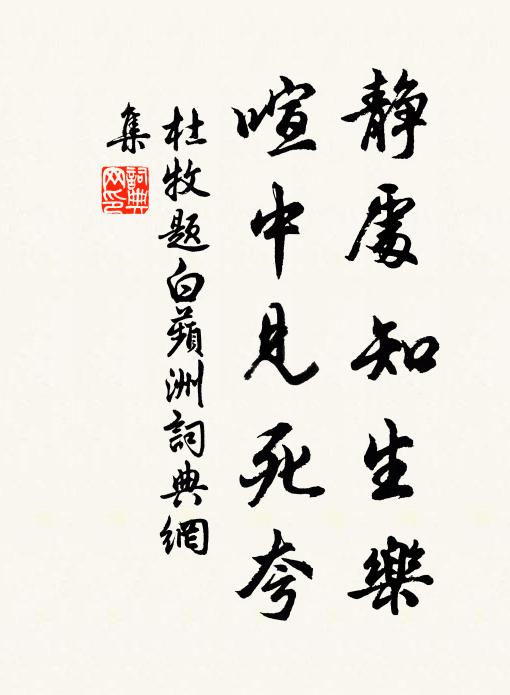 靜處知生樂
喧中見死夸
杜牧題白蘋洲詞典網
集
詞典
网印